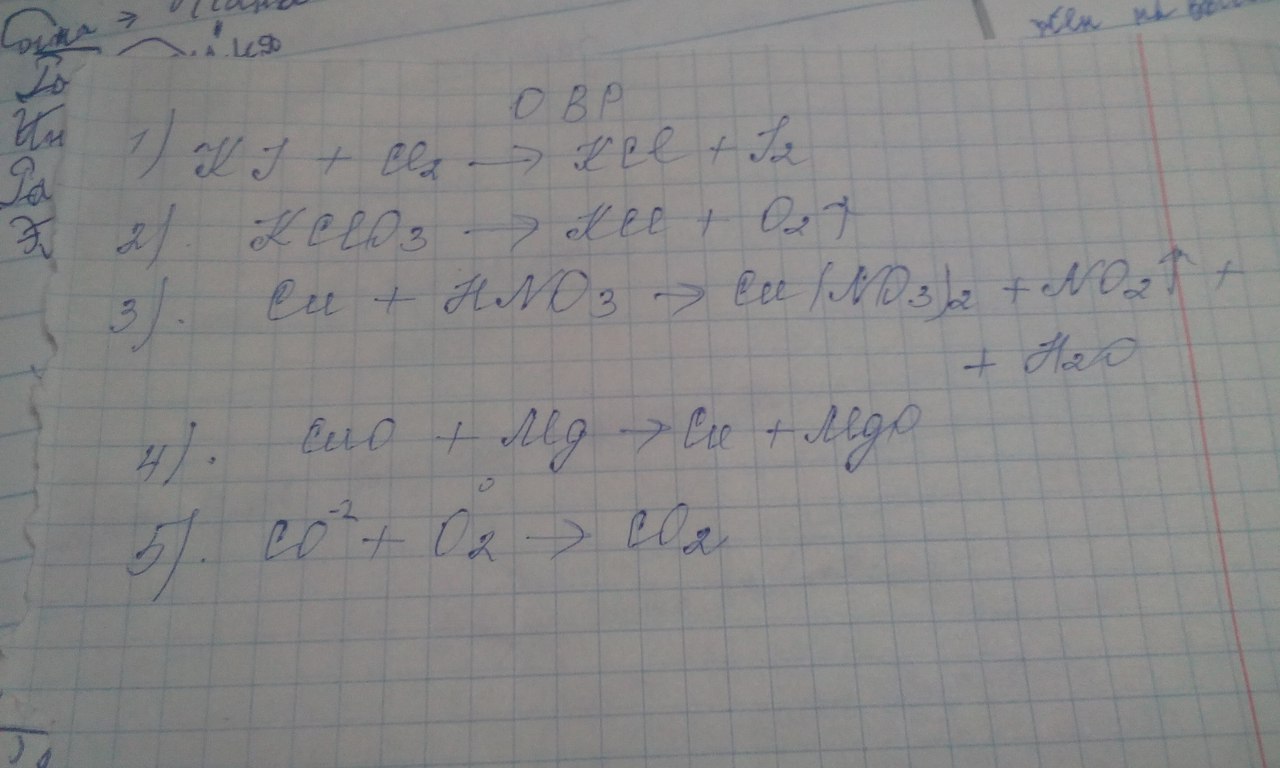 ОВР
1) KJ + Cl₂ → KCl + J₂
2). KClO₃ → KCl + O₂↑
3). Cu + HNO₃ → Cu(NO₃)₂ + NO₂↑ +
+ H₂O
4). CuO + Mg → Cu + MgO
5). CO⁻² + O₂⁰ → CO₂